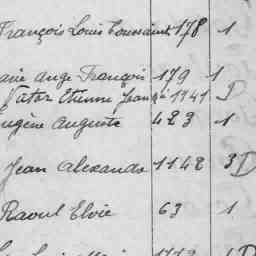 François Louis Toussaint 178 1
arie Ange François 179 1
Victor Etienne Jean 1141 D
ugène Auguste 423 1
Jean Alexandre 1142 3 D
Raoul Elvie 63 1